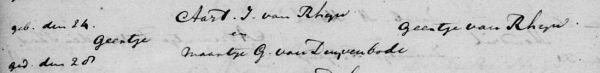 geb. den 24. Aart. J. van Rhijn
Geertje en Geertje van Rhijn
ged. den 28 Maartje G. van Duyvenbode